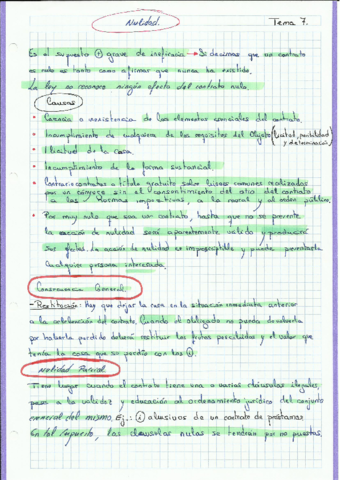 Nulidad.
Tema 7.
Es el supuesto + grave de ineficacia → Si decimos que un contrato
es nulo es tanto como afirmar que nunca ha existido.
La ley no reconoce ningún efecto del contrato nulo.
Causas
Carencia o inexistencia de los elementos esenciales del contrato.
Incumplimiento de cualquiera de los requisitos del Objeto (licitud, posibilidad
y determinación)
Ilicitud de la causa.
Incumplimiento de la forma sustancial.
Contrario contratos a título gratuito sobre bienes comunes realizados
por un cónyuge sin el consentimiento del otro del contrato
a las normas imperativas, a la moral y al orden público.
Por muy nulo que sea un contrato, hasta que no se presente
la acción de nulidad será aparentemente válido y producirá
sus efectos. La acción de nulidad es imprescriptible y puede presentarla
cualquier persona interesada.
Consecuencia General
- Restitución: Hay que dejar la cosa en la situación inmediata anterior
a la celebración del contrato. Cuando el obligado no pueda devolverla
por haberla perdido deberá restituir los frutos percibidos y el valor que
tenía la cosa que se perdió con los
Nulidad Parcial
Tiene lugar cuando el contrato tiene una o varias cláusulas ilegales,
pese a la validez y adecuación al ordenamiento jurídico del conjunto
esencial del mismo. Ej.: abusivos de un contrato de préstamo.
En tal supuesto, las cláusulas nulas se tendrán por no puestas,